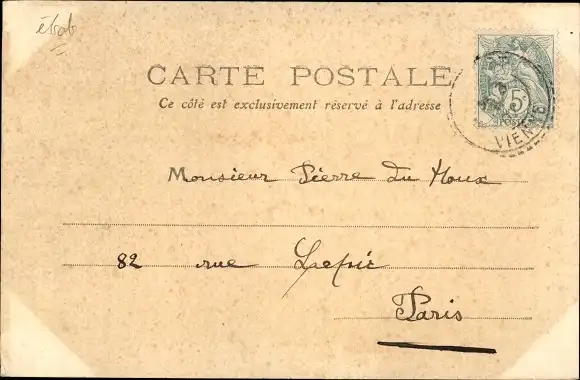 CARTE POSTALE
Ce côté est exclusivement réservé à l'adresse
5c
POSTES
VIENNE
Monsieur Pierre du Houx
82 rue Lepic
Paris